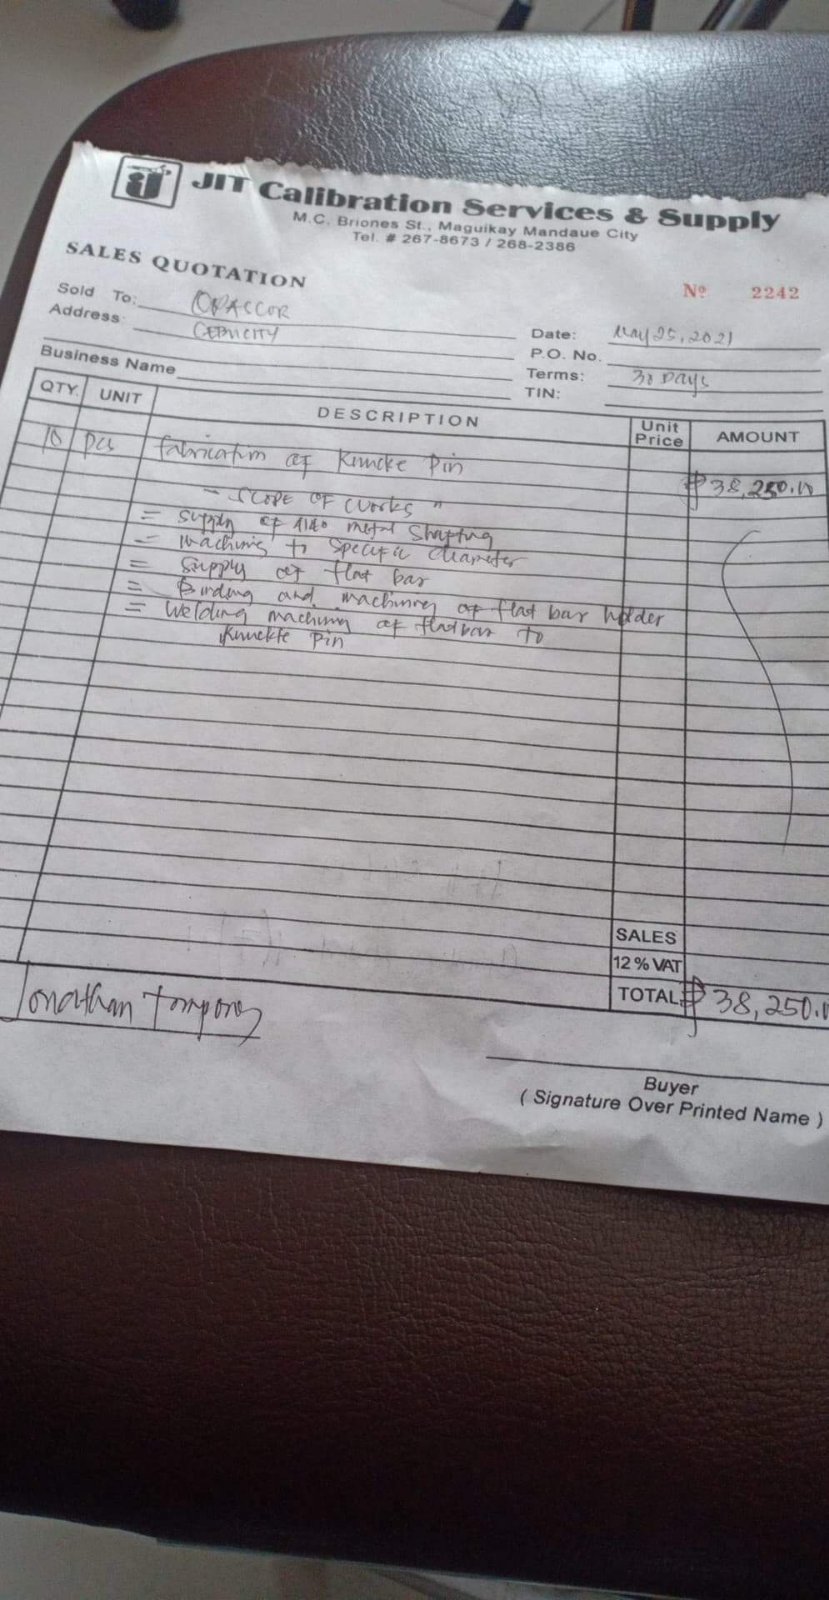 JIT Calibration Services & Supply
M.C. Briones St., Maguikay Mandaue City
Tel. # 267-8673 / 268-2386
SALES QUOTATION
Nº 2242
Sold To: OPASCOR
Address: CEBU CITY
Date: May 25, 2021
P.O. No.
Business Name
Terms: 30 Days
TIN:
QTY. UNIT DESCRIPTION Unit Price AMOUNT
10 pcs fabrication of Knuckle Pin ₱38,250.00
"SCOPE OF Works"
= Supply of metal Shafting
= machining to specific diameter
= Supply of flat bar
= Binding and machining of flat bar holder
= Welding machining of flatbar to
Knuckle pin
SALES
12% VAT
TOTAL ₱38,250.
Jonathan
Buyer
( Signature Over Printed Name )